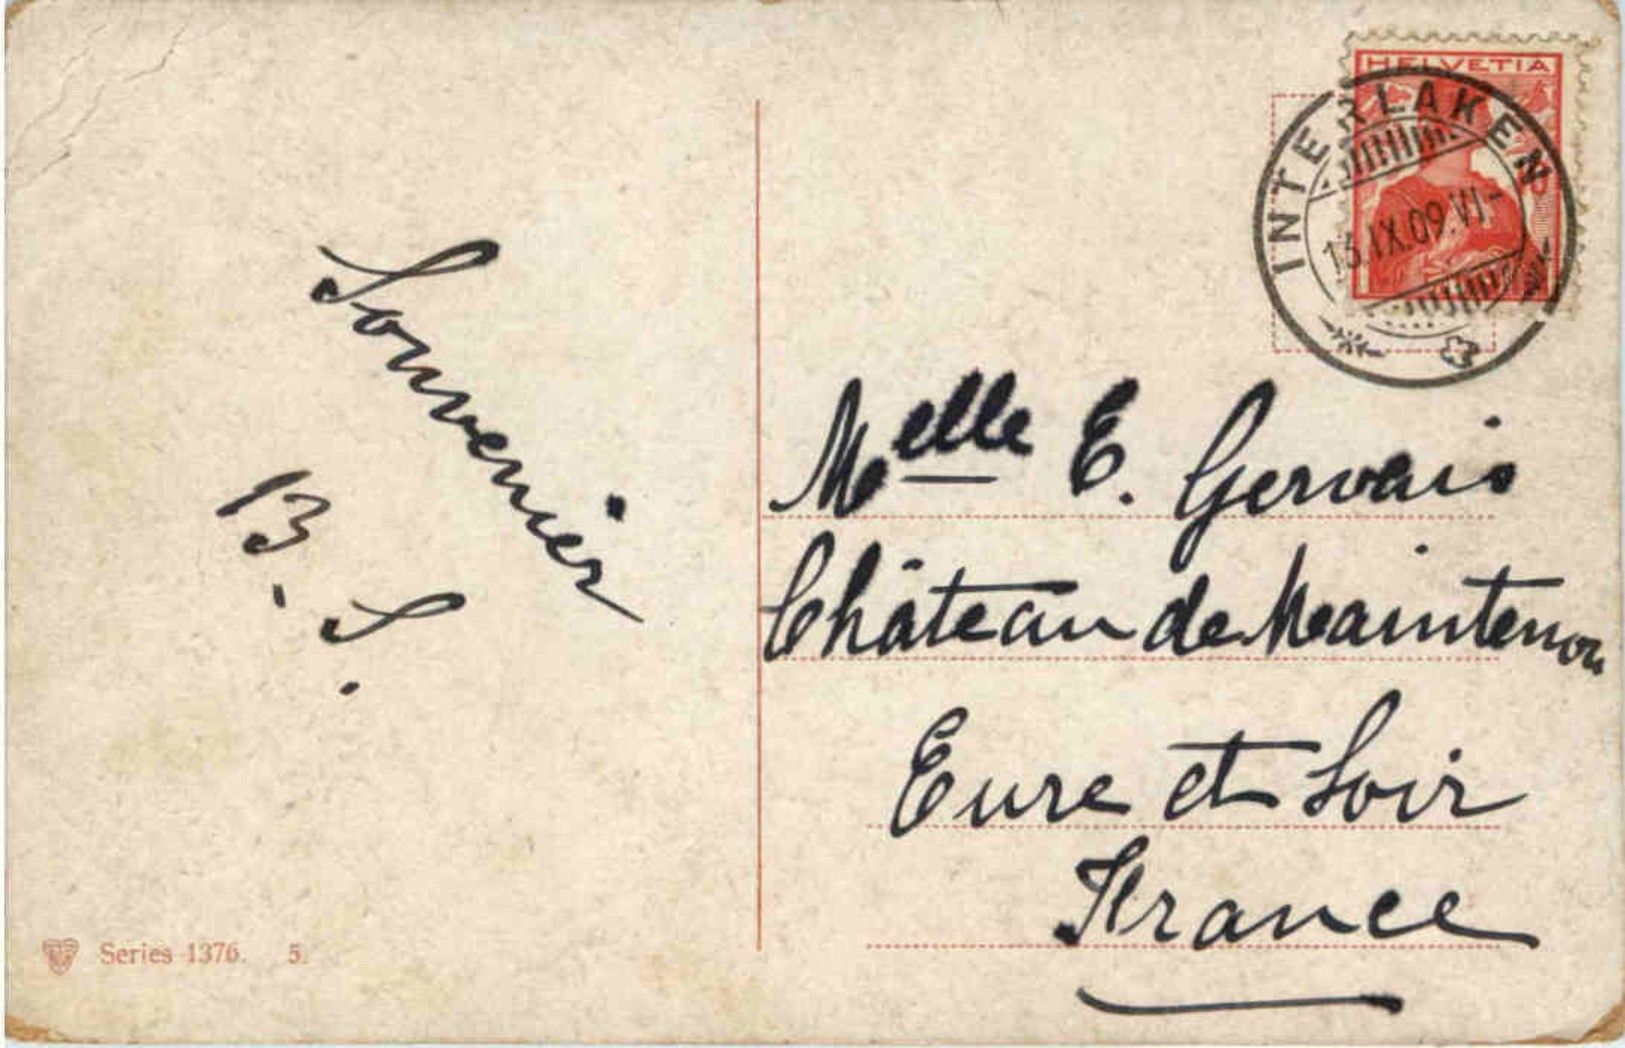 HELVETIA
INTERLAKEN
13.IX.09.VI-
Souvenir
B. S.
Melle E. Gervais
Château de Maintenon
Eure et Loir
France
Series 1376. 5.